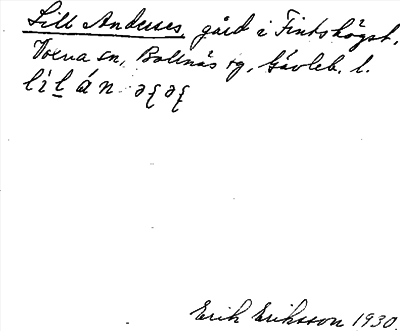 Lill Anderses, gård i Finshögst,
Voxna sn, Bollnäs tg, Gävleb. l.
Erik Eriksson 1930.